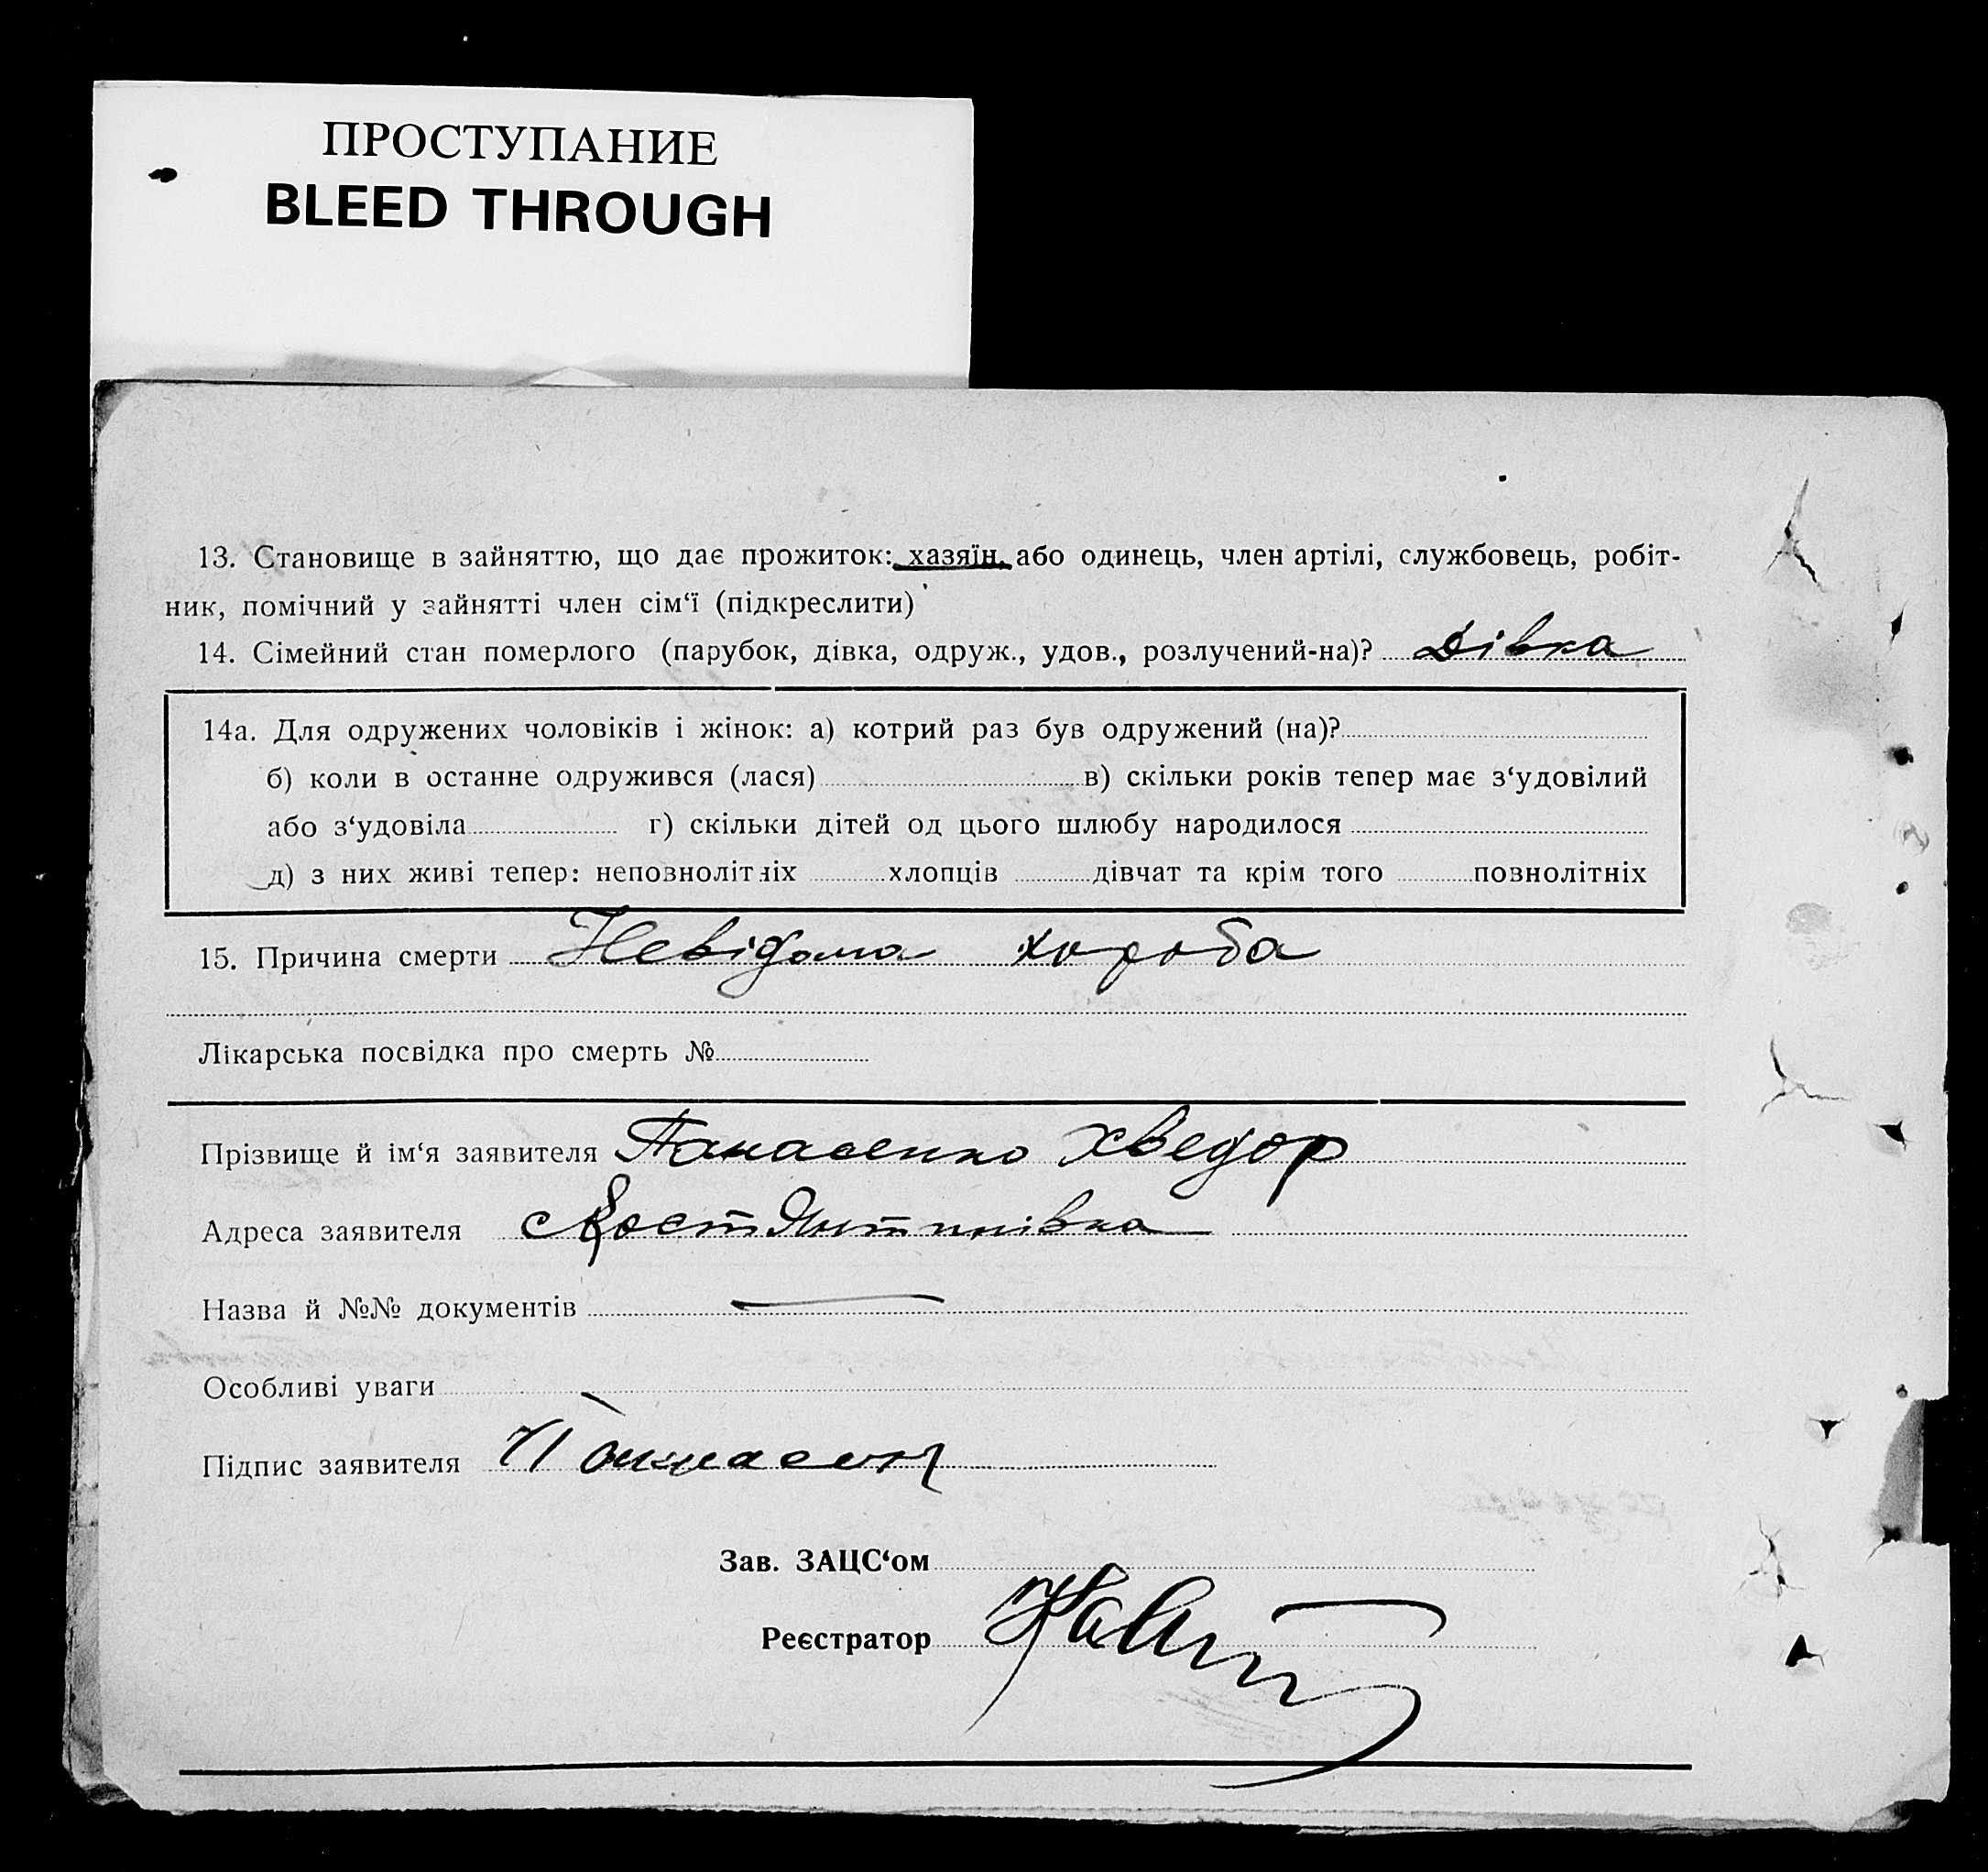 ПРОСТУПАНИЕ
BLEED THROUGH
13. Становище в зайняттю, що дає прожиток: хазяїн, або одинець, член артілі, службовець, робіт-
ник, помічний у зайнятті член сім‘ї (підкреслити)
14. Сімейний стан померлого (парубок, дівка, одруж., удов., розлучений-на)? Дівка
14а. Для одружених чоловіків і жінок: а) котрий раз був одружений (на)?
б) коли в останне одружився (лася) в) скільки років тепер має з‘удовілий
або з‘удовіла г) скільки дітей од цього шлюбу народилося
д) з них живі тепер: неповнолітніх хлопців дівчат та крім того повнолітніх
15. Причина смерти Невідома хороба
Лікарська посвідка про смерть №
Прізвище й ім‘я заявителя Панасенко Хведор
Адреса заявителя с Костянтинівка
Назва й №№ документів —
Особливі уваги
Підпис заявителя Панасен
Зав. ЗАЦС‘ом
Реєстратор